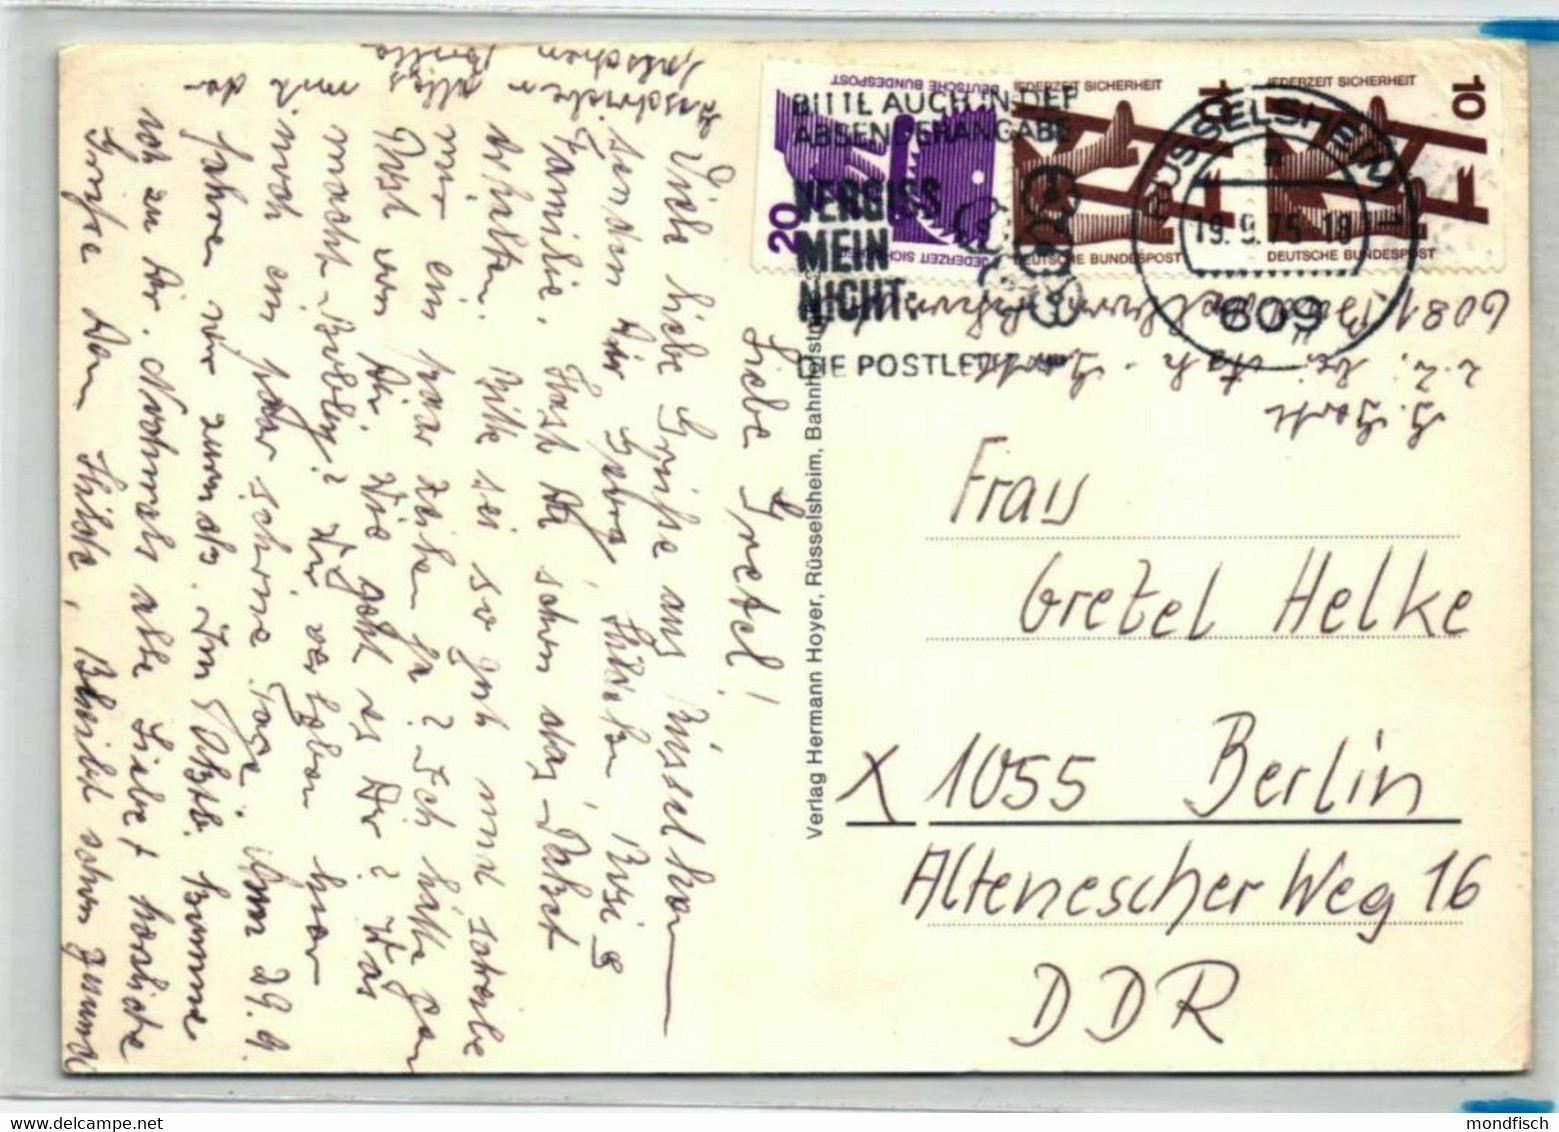 Liebe Gretel!
Viele liebe Grüße aus Rüsselsheim
senden Dir Gerry, Hilde, Rosi u.
Familie. Hast Du schon das Paket
erhalten. Bitte sei so gut und schreibe
mir ein paar Zeilen ja? Ich hätte gern
Post von Dir. Wie geht es Dir? Was
macht Bobby? Wir verleben hier
noch ein paar schöne Tage. Am 29. 9.
fahren wir zurück. Im Oktb. komme
ich zu Dir. Nochmals alle Liebe + herzliche
Grüße Deine Hilde, Bleibt schön gesund
alles
mit der
DEUTSCHE BUNDESPOST
20
JEDERZEIT SICHERHEIT
JEDERZEIT SICHERHEIT
10
DEUTSCHE BUNDESPOST
JEDERZEIT SICHERHEIT
10
DEUTSCHE BUNDESPOST
BITTE AUCH IN DER
ABSENDERANGABE
VERGISS
MEIN
NICHT:
DIE POSTLEITZAHL
RÜSSELSHEIM
19.9.75-18
609
6081
z.Z. bei
Verlag Hermann Hoyer, Rüsselsheim, Bahnhofstr
Frau
Gretel Helke
X 1055 Berlin
Altenescher Weg 16
DDR
mondfisch